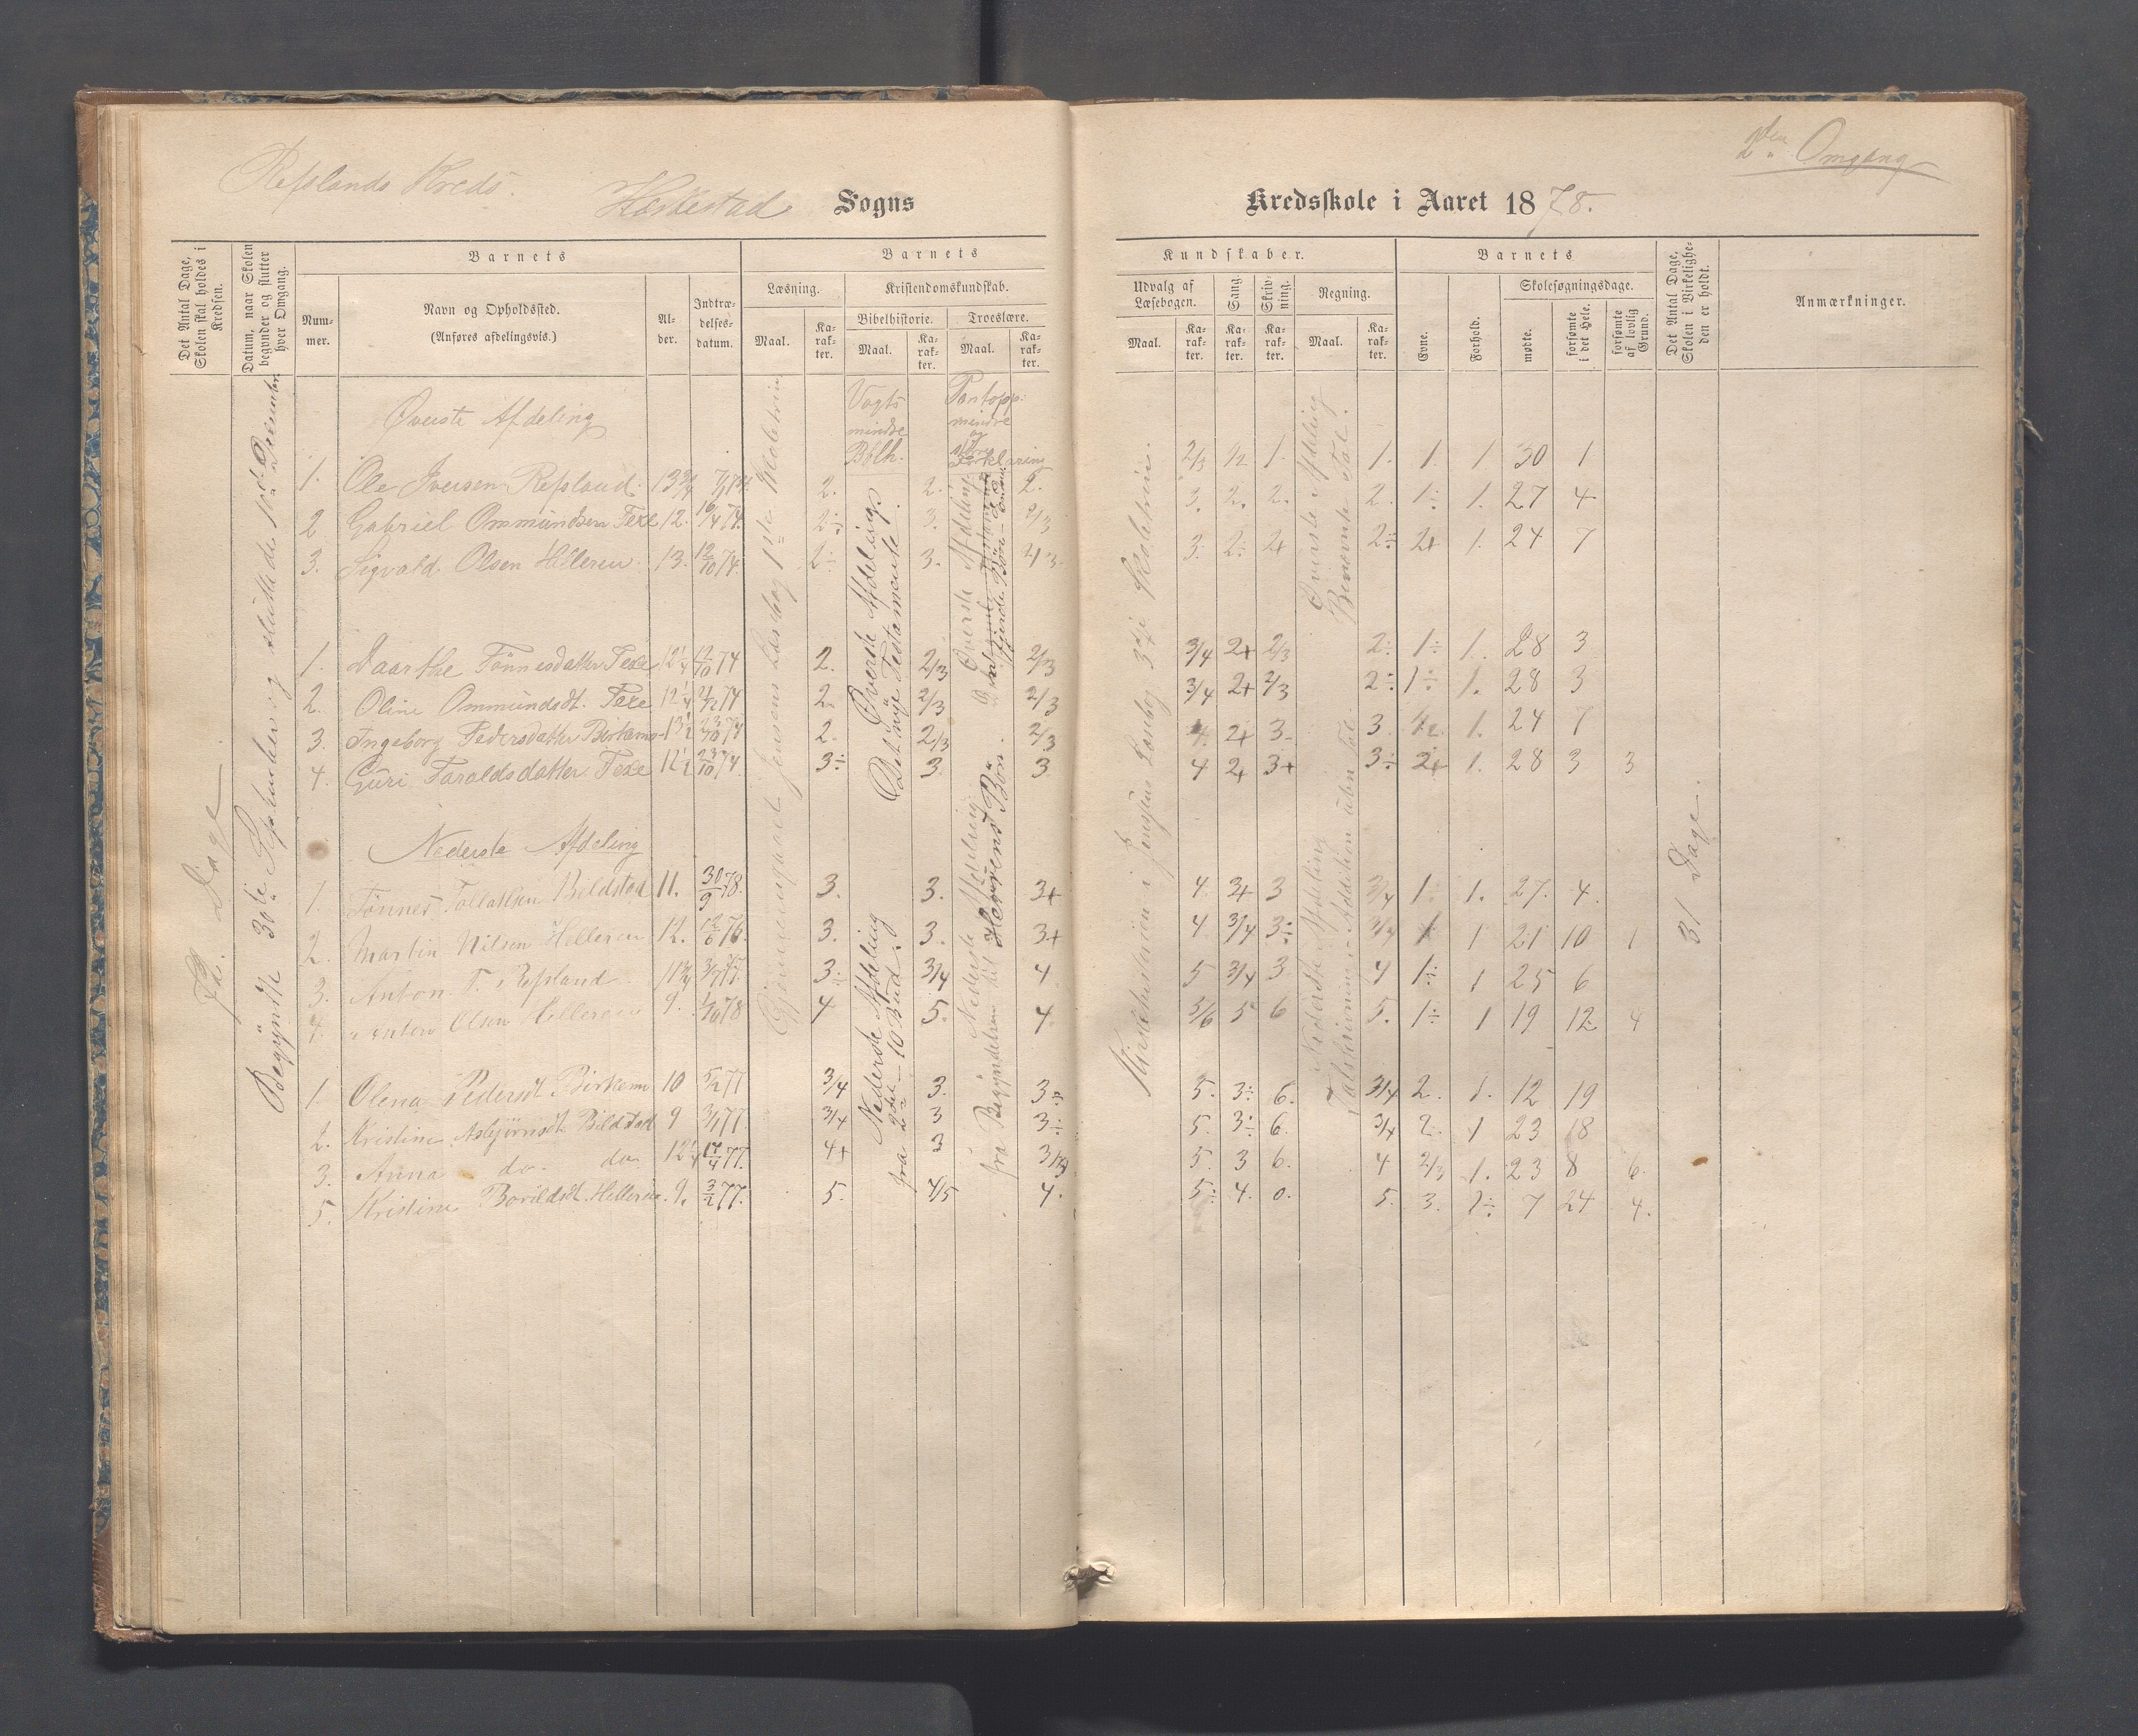 Refslands Kreds.
Heskestad Sogns
2den Omgang
Kredsskole i Aaret 1878.
Det Antal Dage, Skolen skal holdes i Kredsen.
Datum, naar Skolen begynder og slutter hver Omgang.
Barnets
Nummer.
Navn og Opholdssted.
(Anføres afdelingsvis.)
Alder.
Indtrædelsesdatum.
Barnets
Læsning.
Maal.
Karakter.
Kristendomskundskab.
Bibelhistorie.
Maal.
Karakter.
Troeslære.
Maal.
Karakter.
Kundskaber.
Udvalg af Læsebogen.
Maal.
Karakter.
Sang
Karakter.
Skrivning.
Karakter.
Regning.
Maal.
Karakter.
Barnets
Evne.
Forhold.
Skolesøgningsdage.
mødte.
forsømte i det Hele.
forsømte af lovlig Grund.
Det Antal Dage, Skolen i Virkeligheden er holdt.
Anmærkninger.
Dage
Begyndte 30te September og sluttede
Øverste Afdeling
Vogts mindre Bblh.
Pontopp. mindre og Forklaring
Øverste Afdeling
Det nye Testamente.
Øverste Afdeling
fjerde Bøn
Nederste Afdeling
fra 2det – 10 Bud.
Nederste Afdeling
fra Begyndelsen til Herrens Bøn.
Øverste Afdeling
Benævnte Tal.
Nederste Afdeling
31 Dage.
1. Ole Iversen Refsland. 13 3/4 2. 2. 2. 2/3 1/2 1. 1. 1. 1. 30 1
2 Gabriel Ommundsen Texe 12. 16/4 74. 2÷ 3. 2/3 3. 2. 2. 2. 1÷ 1. 27 4
3. Sigvald Olsen Helleren 13. 12/10 74. 2÷ 3. 2/3 3. 2÷ 2+ 2÷ 2+ 1. 24 7
1. Daarthe Tönnesdatter Texe 12 1/4 12/10 74 2. 2/3 2/3 3/4 2+ 2/3 2÷ 1÷ 1. 28 3
2. Oline Ommundsdt. Texe 12 1/4 74 2. 2/3 2/3 3/4 2+ 2/3 2÷ 1÷ 1. 28 3
3. Ingeborg Pedersdatter 13 1/2 23/10 74 2. 2/3 2/3 4. 2+ 3. 3 1. 24 7
4. Guri Taraldsdatter Texe 12 1/2 23/10 74. 3÷ 3. 3 4 2+ 3+ 3÷ 2+ 1. 28 3 3
Nederste Afdeling
1. Tönnes Tollaksen Bildstad 11. 30/9 78. 3. 3. 3+ 4. 3+ 3 3/4 1. 1. 27. 4.
2. Martin Nilsen Helleren 12. 76. 3. 3. 3+ 4 3/4 3÷ 3/4 1 1 21 10 1
3. Anton T. Refsland 11 3/4 77. 3÷ 3/4 4 5 3/4 3 4 1÷ 1 25 6
4. Olsen Helleren 9. 1/10 78 4 5. 4. 5/6 5 6 5. 1÷ 1 19 12 4
1. Olena Pedersdt. 10 5/2 77 3/4 3. 3÷ 5. 3÷ 6. 3/4 2. 1. 12 19
2. Kristine Asbjörnsdt. Bildstad 9 77. 3/4 3 3÷ 5. 3÷ 6. 3/4 2. 1 23 18
3. Anna do. do 12 1/4 17/4 77. 4+ 3 5. 3 6. 4 2/3 1. 23 8 6.
5. Kristine Helleren. 9. 3/2 77. 5. 4/5 4. 5÷ 4. 0. 5. 3. 1÷ 7 24 4.